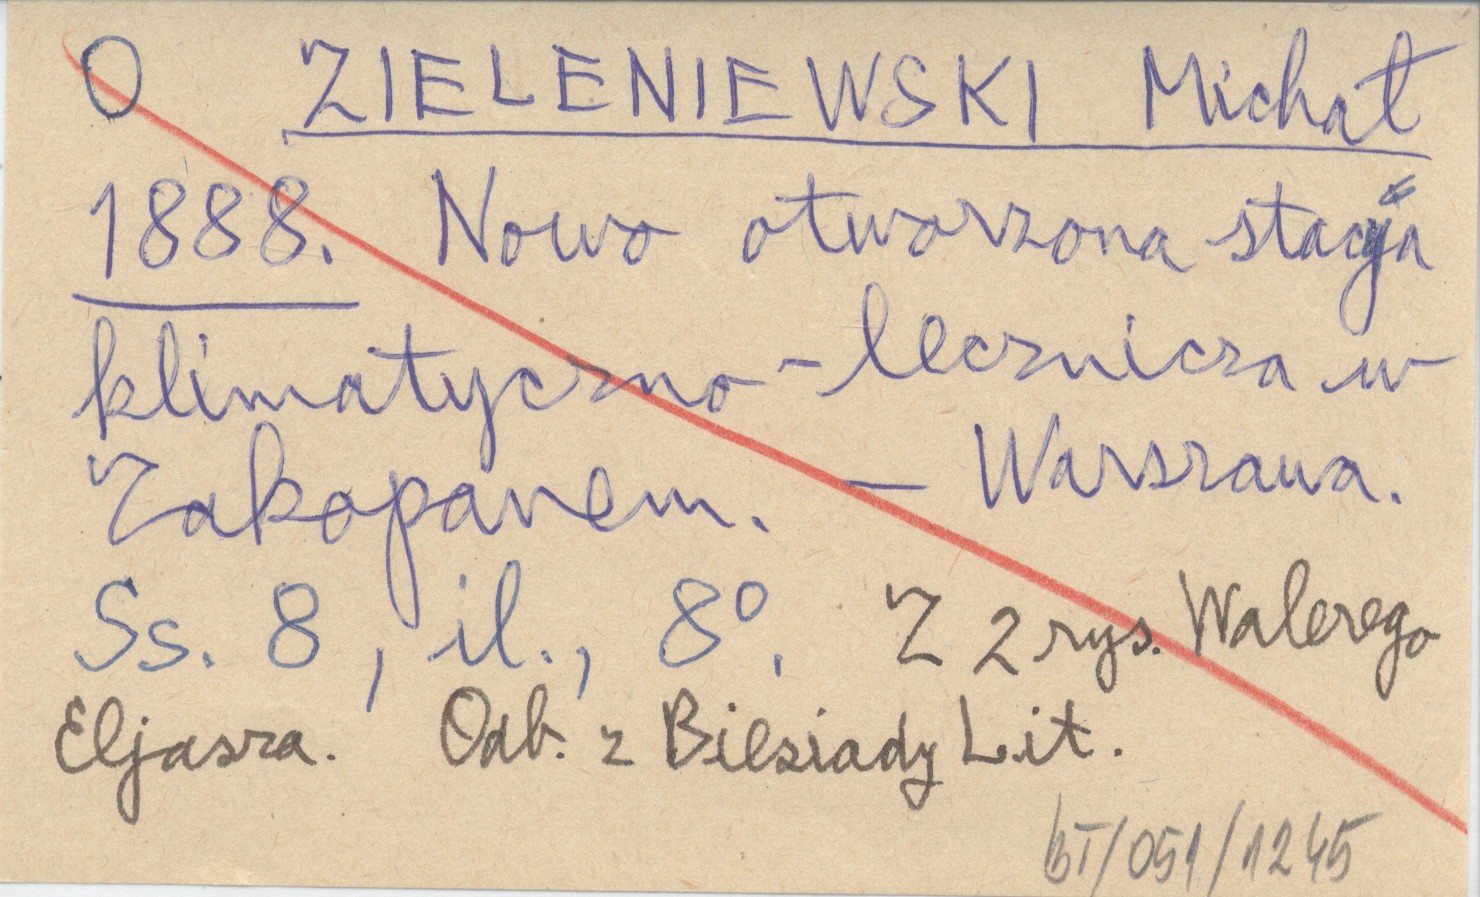 O ZIELENIEWSKI Michał
1888. Nowo otworzona stacja
klimatyczno-lecznicza w
Zakopanem. – Warszawa.
Ss. 8, il., 8°. Z 2 rys. Walerego
Eljasza. Odb. z Biesiady Lit.
bT/051/1245